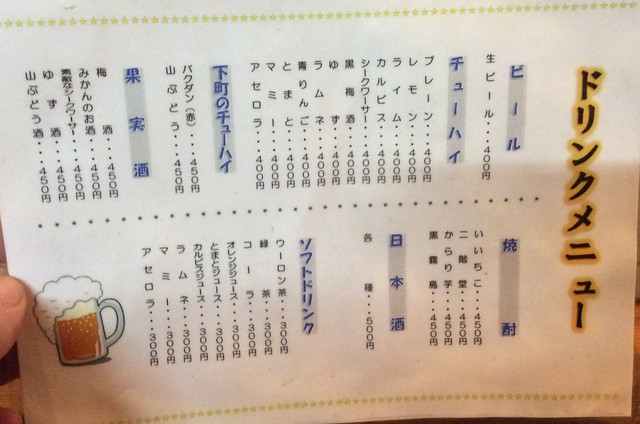 ドリンクメニュー
ビール
生ビール・・・400円
チューハイ
プレーン・・・400円
レモン・・・400円
ライム・・・400円
カルピス・・・400円
シークワーサー・・・400円
黒梅酒・・・400円
ゆず・・・400円
ラムネ・・・400円
青りんご・・・400円
とまと・・・400円
マミー・・・400円
アセロラ・・・400円
下町のチューハイ
バクダン（赤）・・・450円
山ぶどう・・・450円
果実酒
梅酒・・・450円
みかんのお酒・・・450円
素敵なシークワーサー・・・450円
ゆず酒・・・450円
山ぶどう酒・・・450円
焼酎
いいちこ・・・450円
二階堂・・・450円
からり芋・・・450円
黒霧島・・・450円
日本酒
各種・・・500円
ソフトドリンク
ウーロン茶・・・300円
緑茶・・・300円
コーラ・・・300円
オレンジジュース・・・300円
とまとジュース・・・300円
カルピスジュース・・・300円
ラムネ・・・300円
マミー・・・300円
アセロラ・・・300円